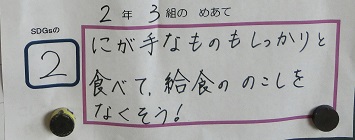 2年 3組の めあて
SDGsの
2
にが手なものもしっかりと
食べて、給食の のこしを
なくそう!